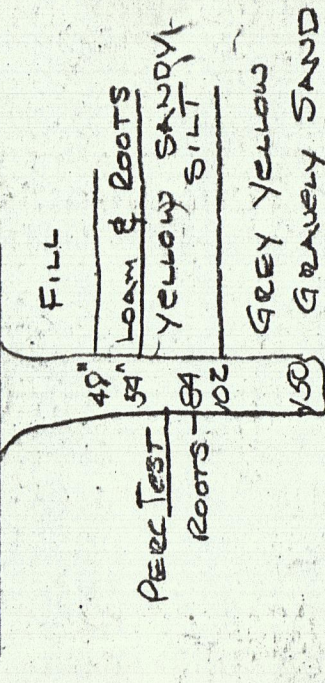 FILL
48"
LOAM & ROOTS
54"
YELLOW SANDY
SILT
PERC TEST
ROOTS - 84
102
GREY YELLOW
GRAVELY SAND
150